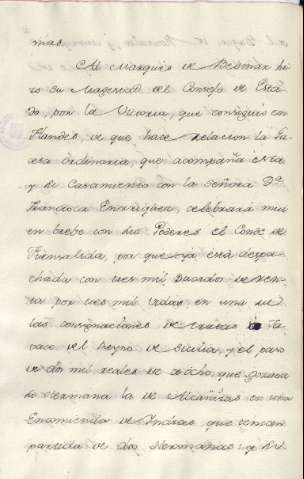 mas.
Al Marques de Bedmar hi
zo su Magestad del Consejo de Esta
do por la Victoria, que consiguió en
Flandes, de que hace relacion la Ga
ceta Ordinaria, que acompaña esta
y su Casamiento con la Señora Dª
Francisca Enriquez, celebrará muy
en brebe con sus Poderes el Conde de
Fuensalida, por que ya está despa
chada con tres mil Ducados de ren
ta por tres mil vidas, en una de
las consignaciones de
del Reyno de Sicilia, y el paso
de dos mil reales de á ocho, que gozaba
su hermana la de Alcañizas en una
Encomienda de Indias, que tenian
partida de dos Hermanas, y